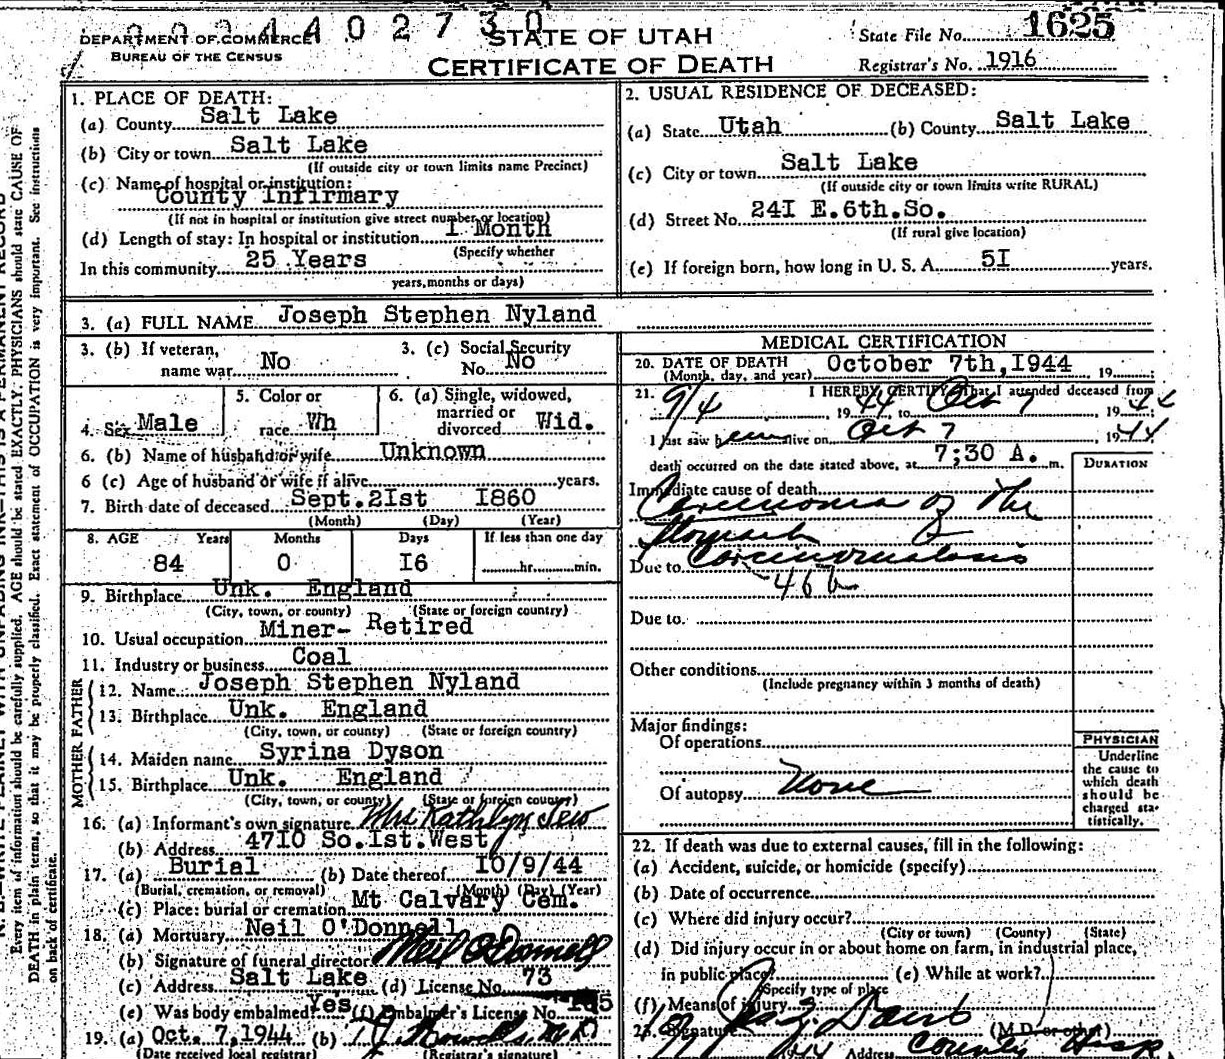 0 0 2 4 4 0 2 7 3 0
DEPARTMENT OF COMMERCE
BUREAU OF THE CENSUS
STATE OF UTAH
CERTIFICATE OF DEATH
State File No. 1625
Registrar's No. 1916
1. PLACE OF DEATH:
(a) County Salt Lake
(b) City or town Salt Lake
(If outside city or town limits name Precinct)
(c) Name of hospital or institution:
County Infirmary
(If not in hospital or institution give street number or location)
(d) Length of stay: In hospital or institution I Month
(Specify whether
In this community 25 Years
years, months or days)
2. USUAL RESIDENCE OF DECEASED:
(a) State Utah (b) County Salt Lake
(c) City or town Salt Lake
(If outside city or town limits write RURAL)
(d) Street No. 24I E.6th.So.
(If rural give location)
(e) If foreign born, how long in U. S. A. 5I years.
3. (a) FULL NAME Joseph Stephen Nyland
3. (b) If veteran, name war No
3. (c) Social Security No. No
4. Sex Male
5. Color or race Wh
6. (a) Single, widowed, married or divorced Wid.
6. (b) Name of husband or wife Unknown
6 (c) Age of husband or wife if alive years.
7. Birth date of deceased Sept.2Ist I860
(Month) (Day) (Year)
8. AGE Years Months Days If less than one day
84 0 I6 hr. min.
9. Birthplace Unk. England
(City, town, or county) (State or foreign country)
10. Usual occupation Miner- Retired
11. Industry or business Coal
FATHER
12. Name Joseph Stephen Nyland
13. Birthplace Unk. England
(City, town, or county) (State or foreign country)
MOTHER
14. Maiden name Syrina Dyson
15. Birthplace Unk. England
(City, town, or county) (State or foreign country)
16. (a) Informant's own signature Mrs Kathlyn
(b) Address 47I0 So.Ist.West
17. (a) Burial (b) Date thereof I0/9/44
(Burial, cremation, or removal) (Month) (Day) (Year)
(c) Place: burial or cremation Mt Calvary Cem.
18. (a) Mortuary Neil O'Donnell
(b) Signature of funeral director Neil O'Donnell
(c) Address Salt Lake (d) License No. 73
(e) Was body embalmed? Yes (f) Embalmer's License No.
19. (a) Oct. 7,1944 (b)
(Date received local registrar) (Registrar's signature)
MEDICAL CERTIFICATION
20. DATE OF DEATH October 7th,I944, 19
(Month, day, and year)
21. I HEREBY CERTIFY that I attended deceased from
9/4, 1944, to Oct 7, 1944;
I last saw him alive on Oct 7, 1944
death occurred on the date stated above, at 7;30 A. m.
DURATION
Immediate cause of death
Carcinoma of the
Stomach
Due to Carcinomatosis
46b
Due to
Other conditions
(Include pregnancy within 3 months of death)
Major findings:
Of operations
Of autopsy None
PHYSICIAN
Underline
the cause to
which death
should be
charged sta-
tistically.
22. If death was due to external causes, fill in the following:
(a) Accident, suicide, or homicide (specify)
(b) Date of occurrence
(c) Where did injury occur?
(City or town) (County) (State)
(d) Did injury occur in or about home on farm, in industrial place,
in public place? (e) While at work?
(Specify type of place
(f) Means of injury
23. Signature (M.D. or other)
Address County Hosp
N. B.—WRITE PLAINLY WITH UNFADING INK—THIS IS A PERMANENT RECORD
Every item of information should be carefully supplied. AGE should be stated EXACTLY. PHYSICIANS should state CAUSE OF
DEATH in plain terms, so that it may be properly classified. Exact statement of OCCUPATION is very important. See instructions
on back of certificate.